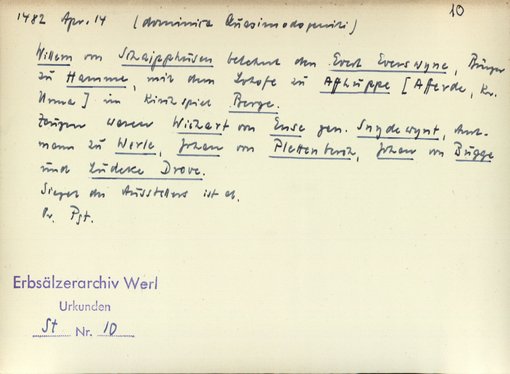 10
1482 Apr. 14 (dominica Quasimodogeniti)
Willem von Schaiphusen belehnt den Evert Everswyne, Bürger
zu Hamme, mit dem Hofe zu Afhuppe [Afferde, Kr.
Unna] im Kirchspiel Berge.
Zeugen waren Wichart von Ense gen. Snydewynt, Amt-
mann zu Werle, Johan von Plettenbrich, Johan von Bügge
und Ludeke Drove.
Siegel des Ausstellers ist ab.
Or. Pgt.
Erbsälzerarchiv Werl
Urkunden
St Nr. 10